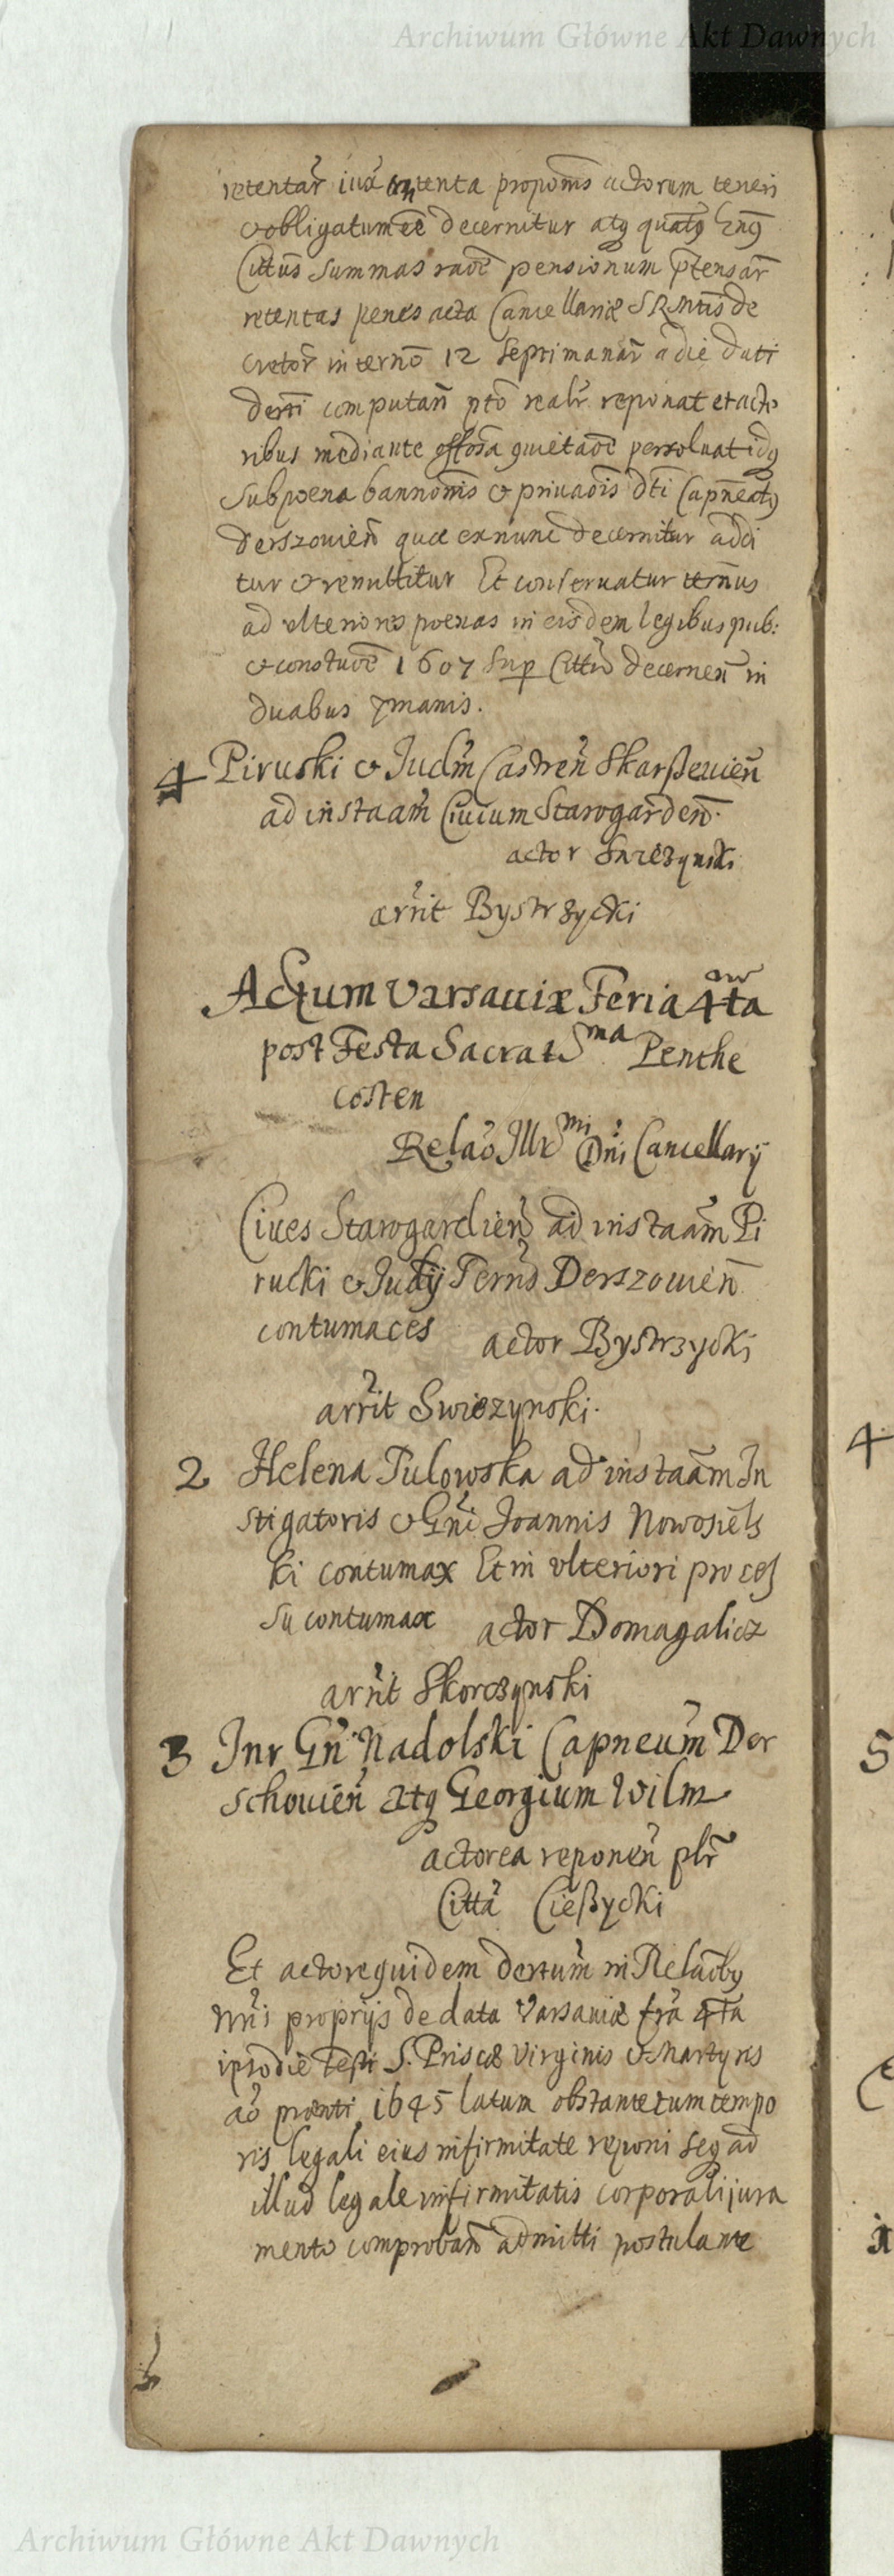 Archiwum Główne Akt Dawnych
retentar̃ iux̃ contenta propoñis actorum teneri
& obligatum eē decernitur atq̃ quatq̃ Gñs
Cittũs summas raõe pensionum p̃tensar̃
retentas penes acta Cancellariæ SRMtis de
cretor̃ in terño 12 septimanar̃ a die dati
decreti computañ pto realr̃ reponat et acto
ribus mediante quietaõe persoluat idq̃
sub poena bannoñis & priuaõis dti Capñeatq̃
Derszouieñ quæ ex nunc decernitur addi
tur & remittitur Et conseruatur termñus
ad vlteriores poenas in eisdem legibus pub:
& constuõe 1607 sup Cittũ decerneñ in
duabus 7manis.
4 Piruski & Judm̃ Castreñ Skarszeuieñ
ad instaam̃ Ciuium Starogardeñ.
actor Swiezynski
arr̃it Bystrzycki
Actum Varsauiæ Feria 4ta
post Festa Sacrat Sma Penthe
costen
Relaõ Illrmi Dñi Cancellarij
Ciues Starogardieñ ad instaam̃ Pi
rucki & Judij Terñs Derszouieñ
contumaces actor Bystrzycki
arr̃it Swiezynski.
2 Helena Tulowska ad instaãm In
stigatoris & Gñi Joannis Nowosiels
ki contumax Et in vlteriori proces
su contumax actor Domagalicz
arr̃it Skorczynski
3 Inr Gñ Nadolski Capneum̃ Der
schouieñ atq̃ Georgium Wilm
actorea reponeñ plr̃
Citta Cieszycki
Et actore quidem dertum̃ in Relaõby
nr̃is proprijs de data Varsauiæ fr̃a 4ta
ipso die festi S. Priscæ Virginis & Martyris
ao præñti 1645 latum obstante tum tempo
ris legali eius infirmitate reponi seq̃ ad
illud legale infirmitatis corporali jura
mento comprobañ admitti postulante
4
5
Archiwum Główne Akt Dawnych